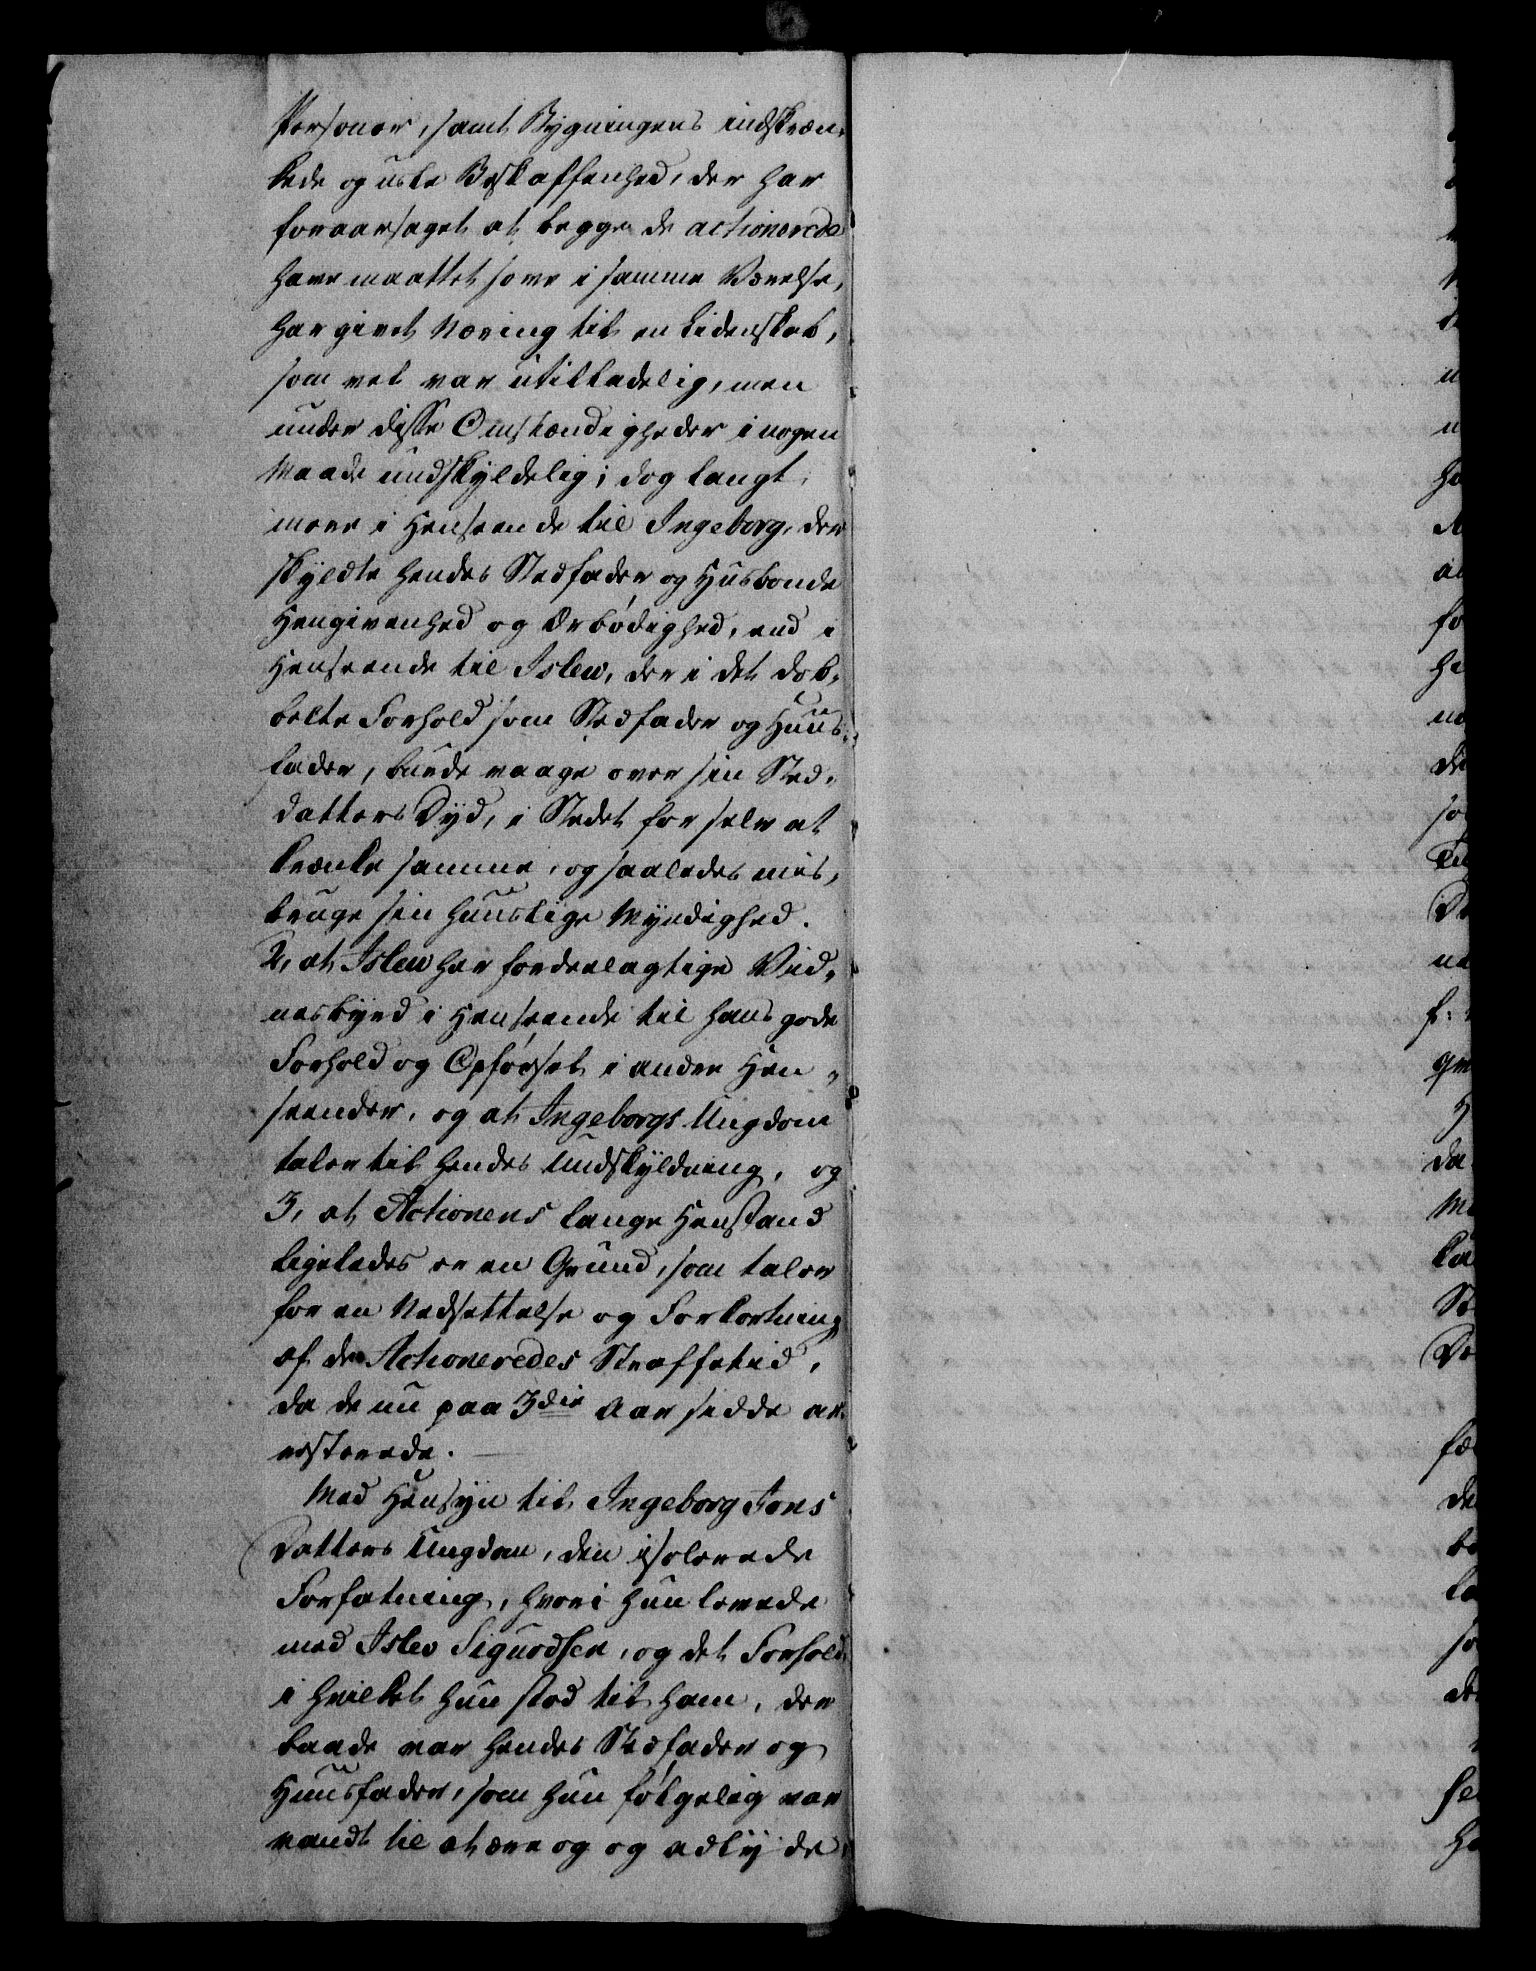 Personer, samt Bygningens indskræn-
kede og usle Beskaffenhed, der har
foraarsaget at begge de actionerede
have maattet sove i samme Værelse,
har givet Næring til en Lidenskab,
som vel var utilladelig, men
under disse Omstændigheder i nogen
Maade undskyldelig; dog langt
meere i Henseende til Ingeborg, der
skyldte hendes Stedfader og Husbonde
Hengivenhed og Ærbødighed, end i
Henseende til Islev, der i det dob-
belte Forhold som Stedfader og Huus-
fader, burde vaage over sin Sted-
datters Dyd, i Stedet for selv at
krænke samme, og saaledes mis-
bruge sin huuslige Myndighed.
2, at Islev har fordeelagtige Vid-
nesbyrd i Henseende til hans gode
Forhold og Opførsel i andre Hen-
seender, og at Ingeborgs Ungdom
taler til hendes Undskyldning, og
3, at Actionens lange Henstand
ligeledes er en Grund, som taler
for en Nedsettelse og Forkortning
af de Actioneredes Straffetid,
da de nu paa 3die Aar sidde ar-
resterede.
Med Hensyn til Ingeborg Jons
Datters Ungdom, den isolerede
Forfatning, hvori hun levede
med Islev Sigurdsen, og det Forhold
i hvilket hun stod til ham, der
baade var hendes Stedfader og
Huusfader, som hun følgelig var
vandt til at ære og og adlyde